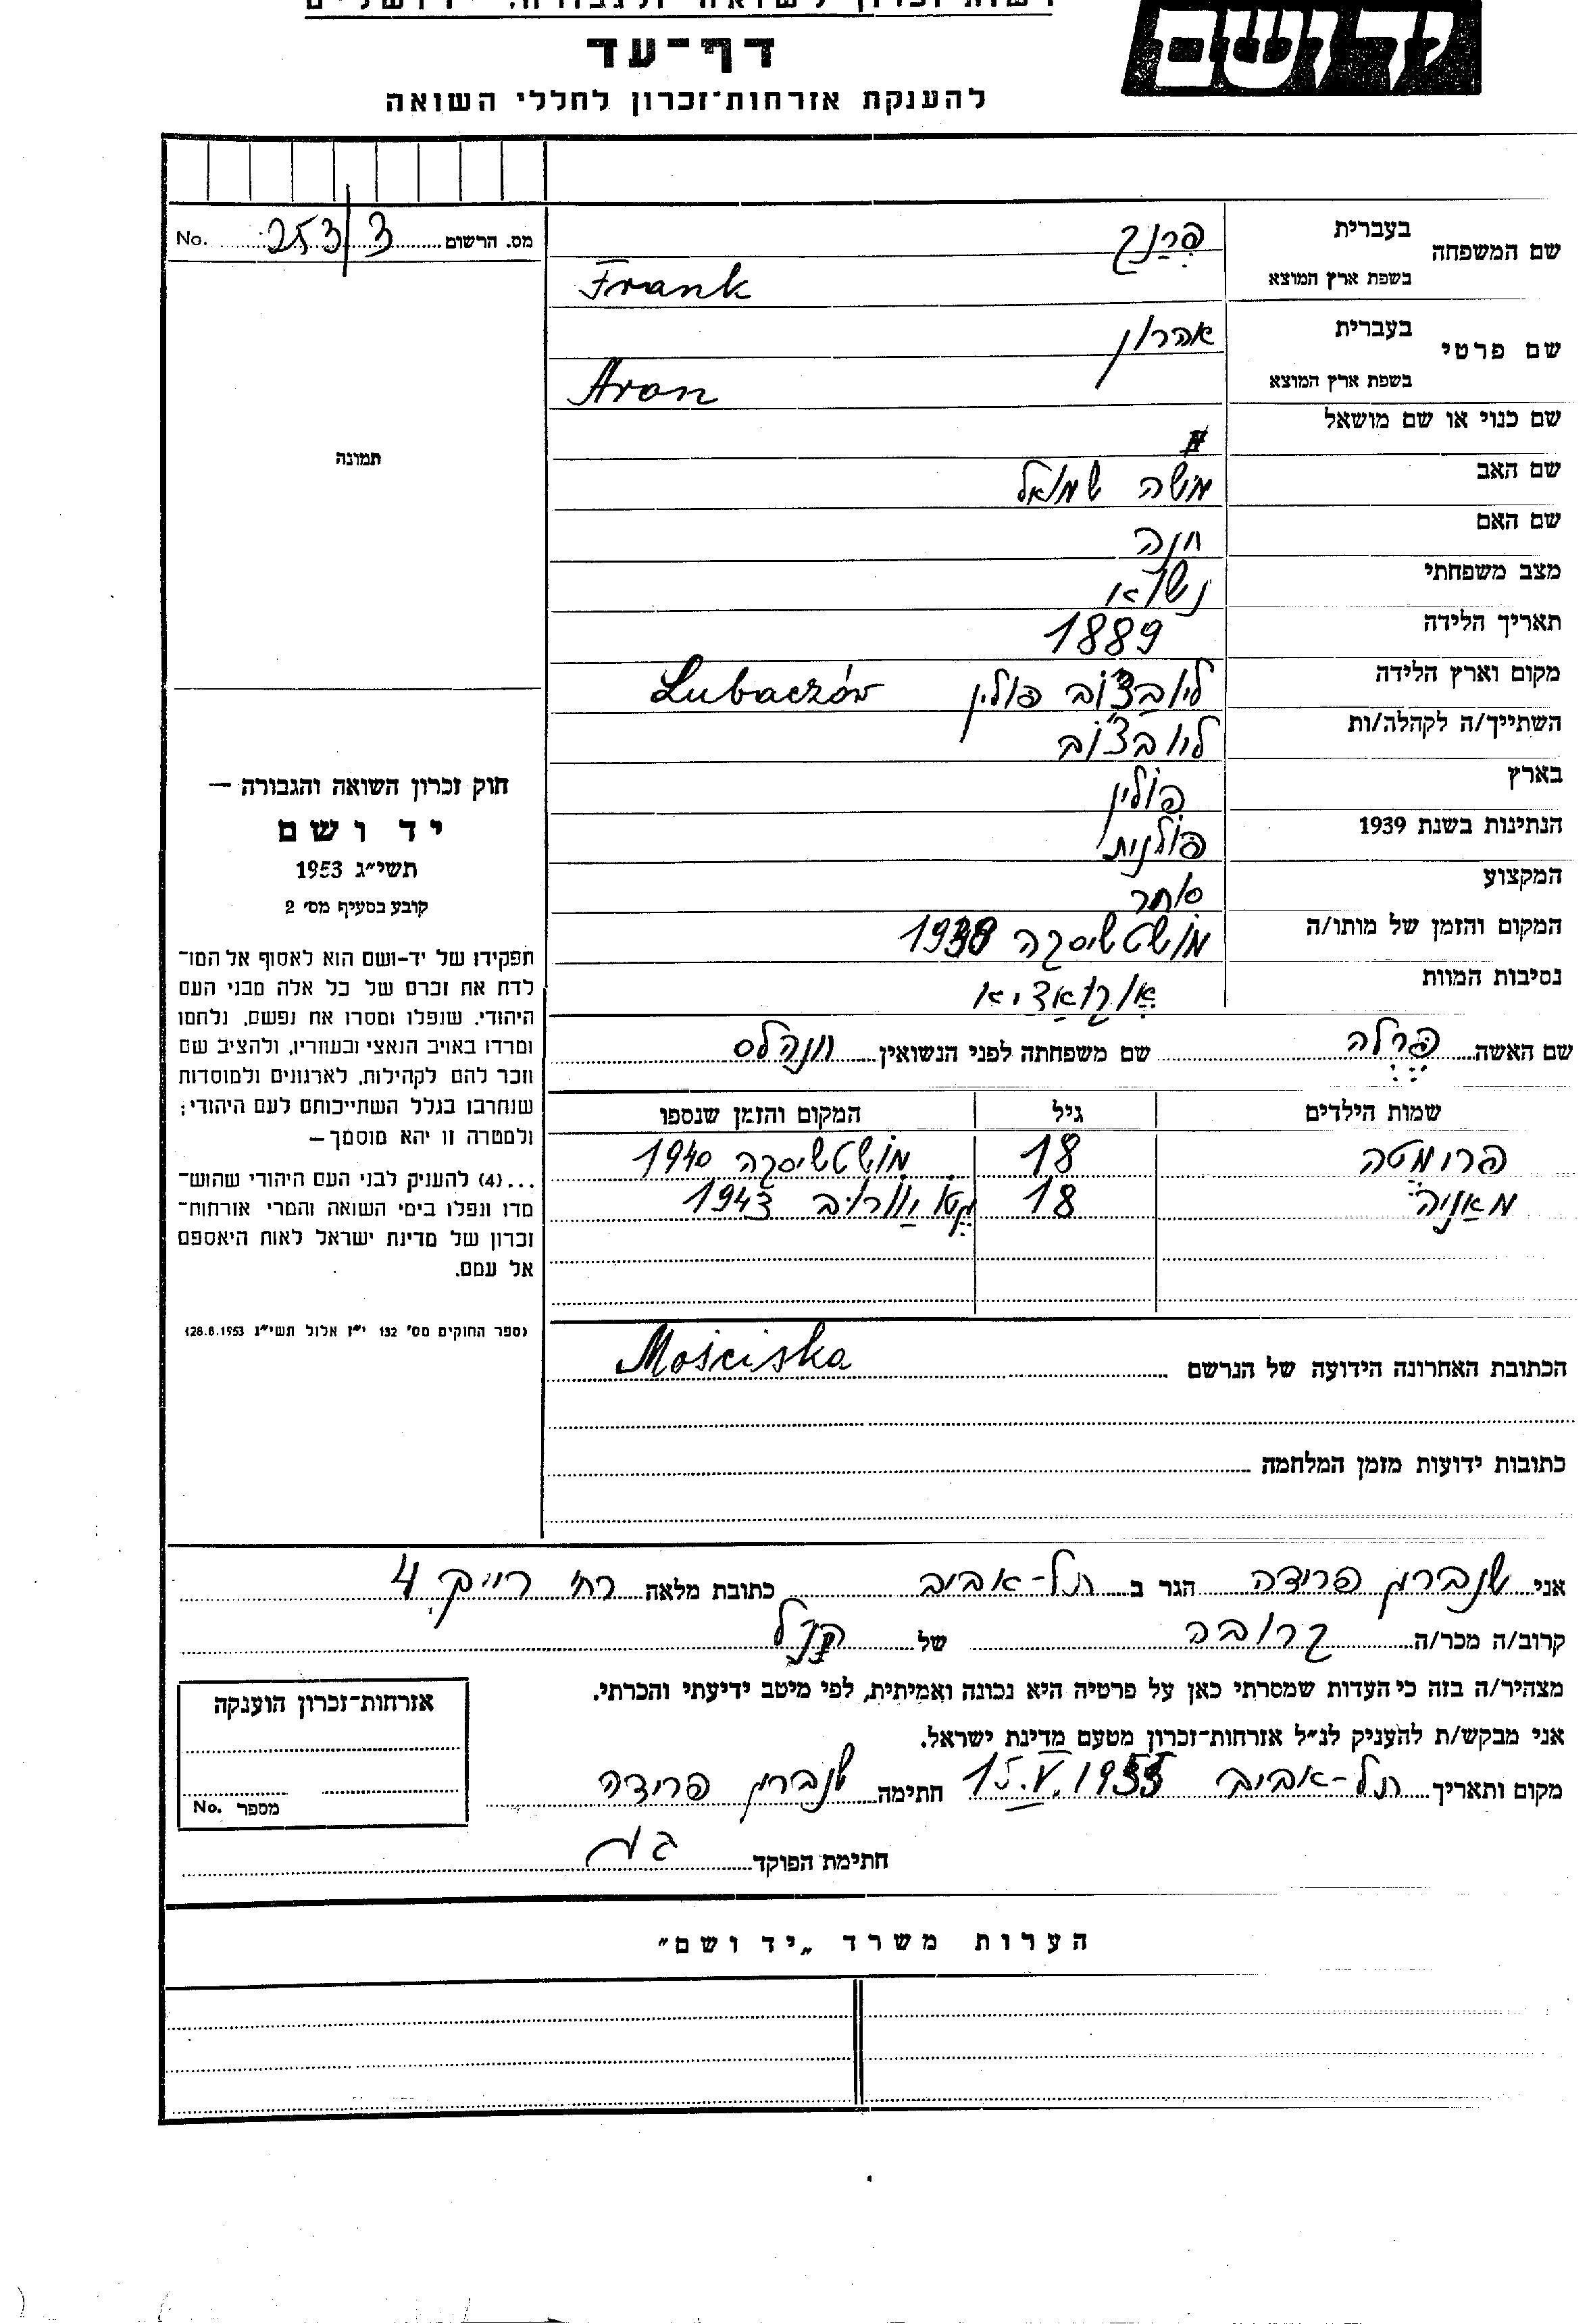 רשות זכרון לשואה ולגבורה, ירושלים
יד ושם
דף־עד
להענקת אזרחות־זכרון לחללי השואה
מס. הרשום 253/3 No.
שם המשפחה בעברית פרנק
בשפת ארץ המוצא Frank
שם פרטי בעברית אהרון
בשפת ארץ המוצא Aron
שם כנוי או שם מושאל
שם האב משה שמואל
שם האם חנה
מצב משפחתי נשוא
תאריך הלידה 1889
מקום וארץ הלידה ליובצ'וב פולין Lubaczów
השתייך/ה לקהלה/ות ליובצ'וב
בארץ פולין
הנתינות בשנת 1939 פולנית
המקצוע סוחר
המקום והזמן של מותו/ה מושטשיסקה
נסיבות המוות
שם האשה פרלה שם משפחתה לפני הנשואין
שמות הילדים גיל המקום והזמן שנספו
פרומטה 18 מושטשיסקה 1940
מאניה 18 1943
הכתובת האחרונה הידועה של הנרשם Mościska
כתובות ידועות מזמן המלחמה
תמונה
חוק זכרון השואה והגבורה —
יד ושם
תשי״ג 1953
קובע בסעיף מס׳ 2
תפקידו של יד-ושם הוא לאסוף אל המו־
לדת את זכרם של כל אלה מבני העם
היהודי, שנפלו ומסרו את נפשם, נלחמו
ומרדו באויב הנאצי ובעוזריו, ולהציב שם
וזכר להם לקהילות, לארגונים ולמוסדות
שנחרבו בגלל השתייכותם לעם היהודי;
ולמטרה זו יהא מוסמך—
...(4) להעניק לבני העם היהודי שהוש־
מדו ונפלו בימי השואה והמרי אזרחות־
זכרון של מדינת ישראל לאות היאספם
אל עמם.
(ספר החוקים מס׳ 132 י״ז אלול תשי״ג 28.8.1953)
אני שנברון פרידה הגר ב תל-אביב כתובת מלאה רח' רייק 4
קרוב/ה מכר/ה קרובה של הנ"ל
מצהיר/ה בזה כי העדות שמסרתי כאן על פרטיה היא נכונה ואמיתית, לפי מיטב ידיעתי והכרתי.
אני מבקש/ת להעניק לנ״ל אזרחות־זכרון מטעם מדינת ישראל.
מקום ותאריך תל-אביב 15.V.1955 חתימה שנברון פרידה
חתימת הפוקד
אזרחות־זכרון הוענקה
מספר No.
הערות משרד „יד ושם״